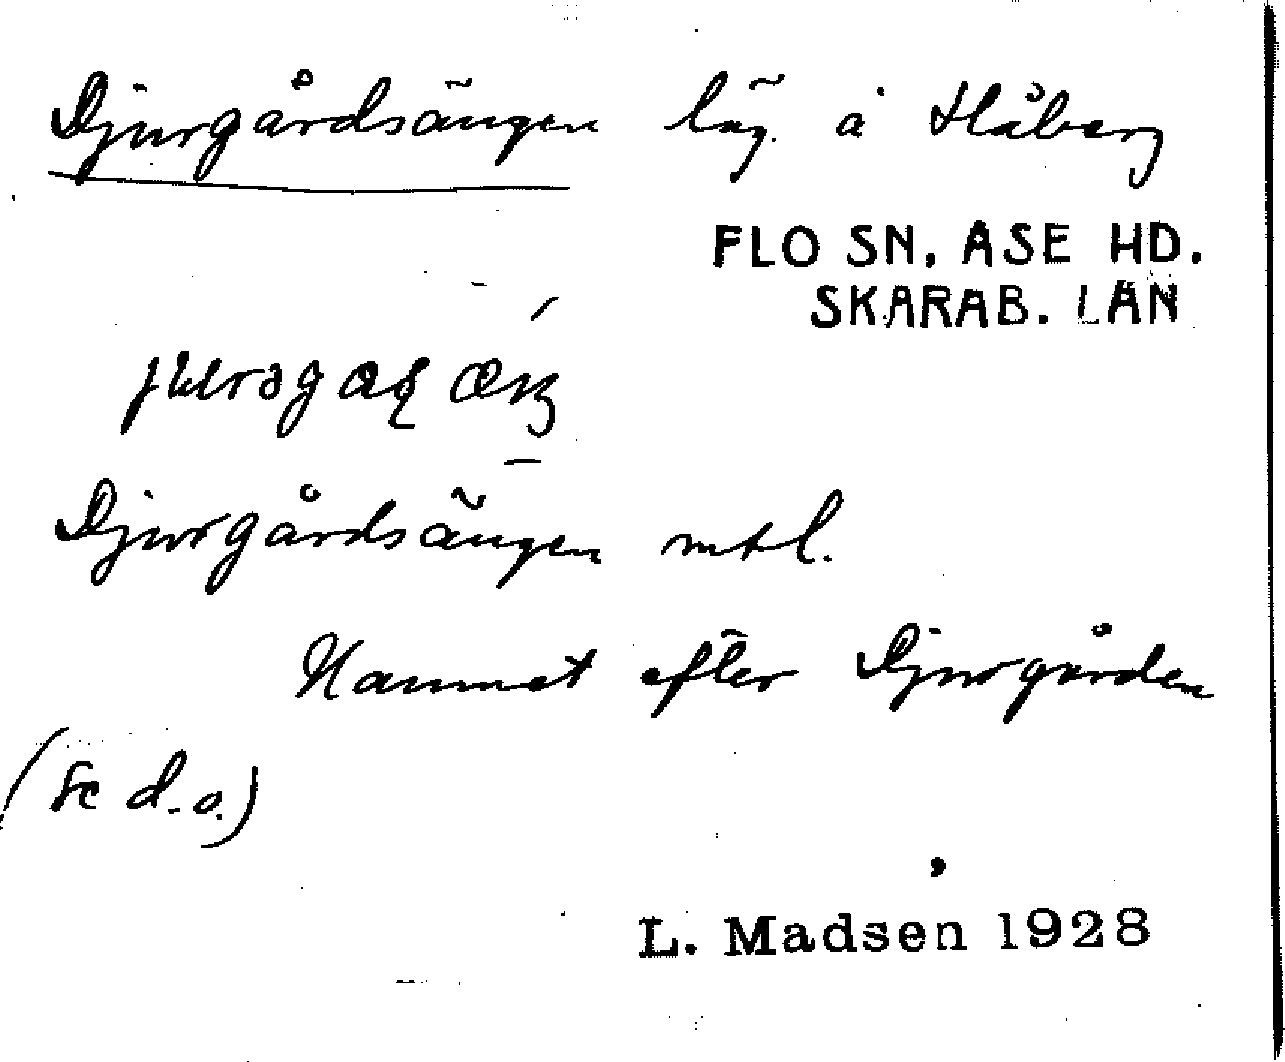 Djurgårdsängen läg. å Håberg
FLO SN, ASE HD.
SKARAB. LÄN
Djurgårdsängen mtl.
Namnet efter Djurgården
(se d.o.)
L. Madsen 1928